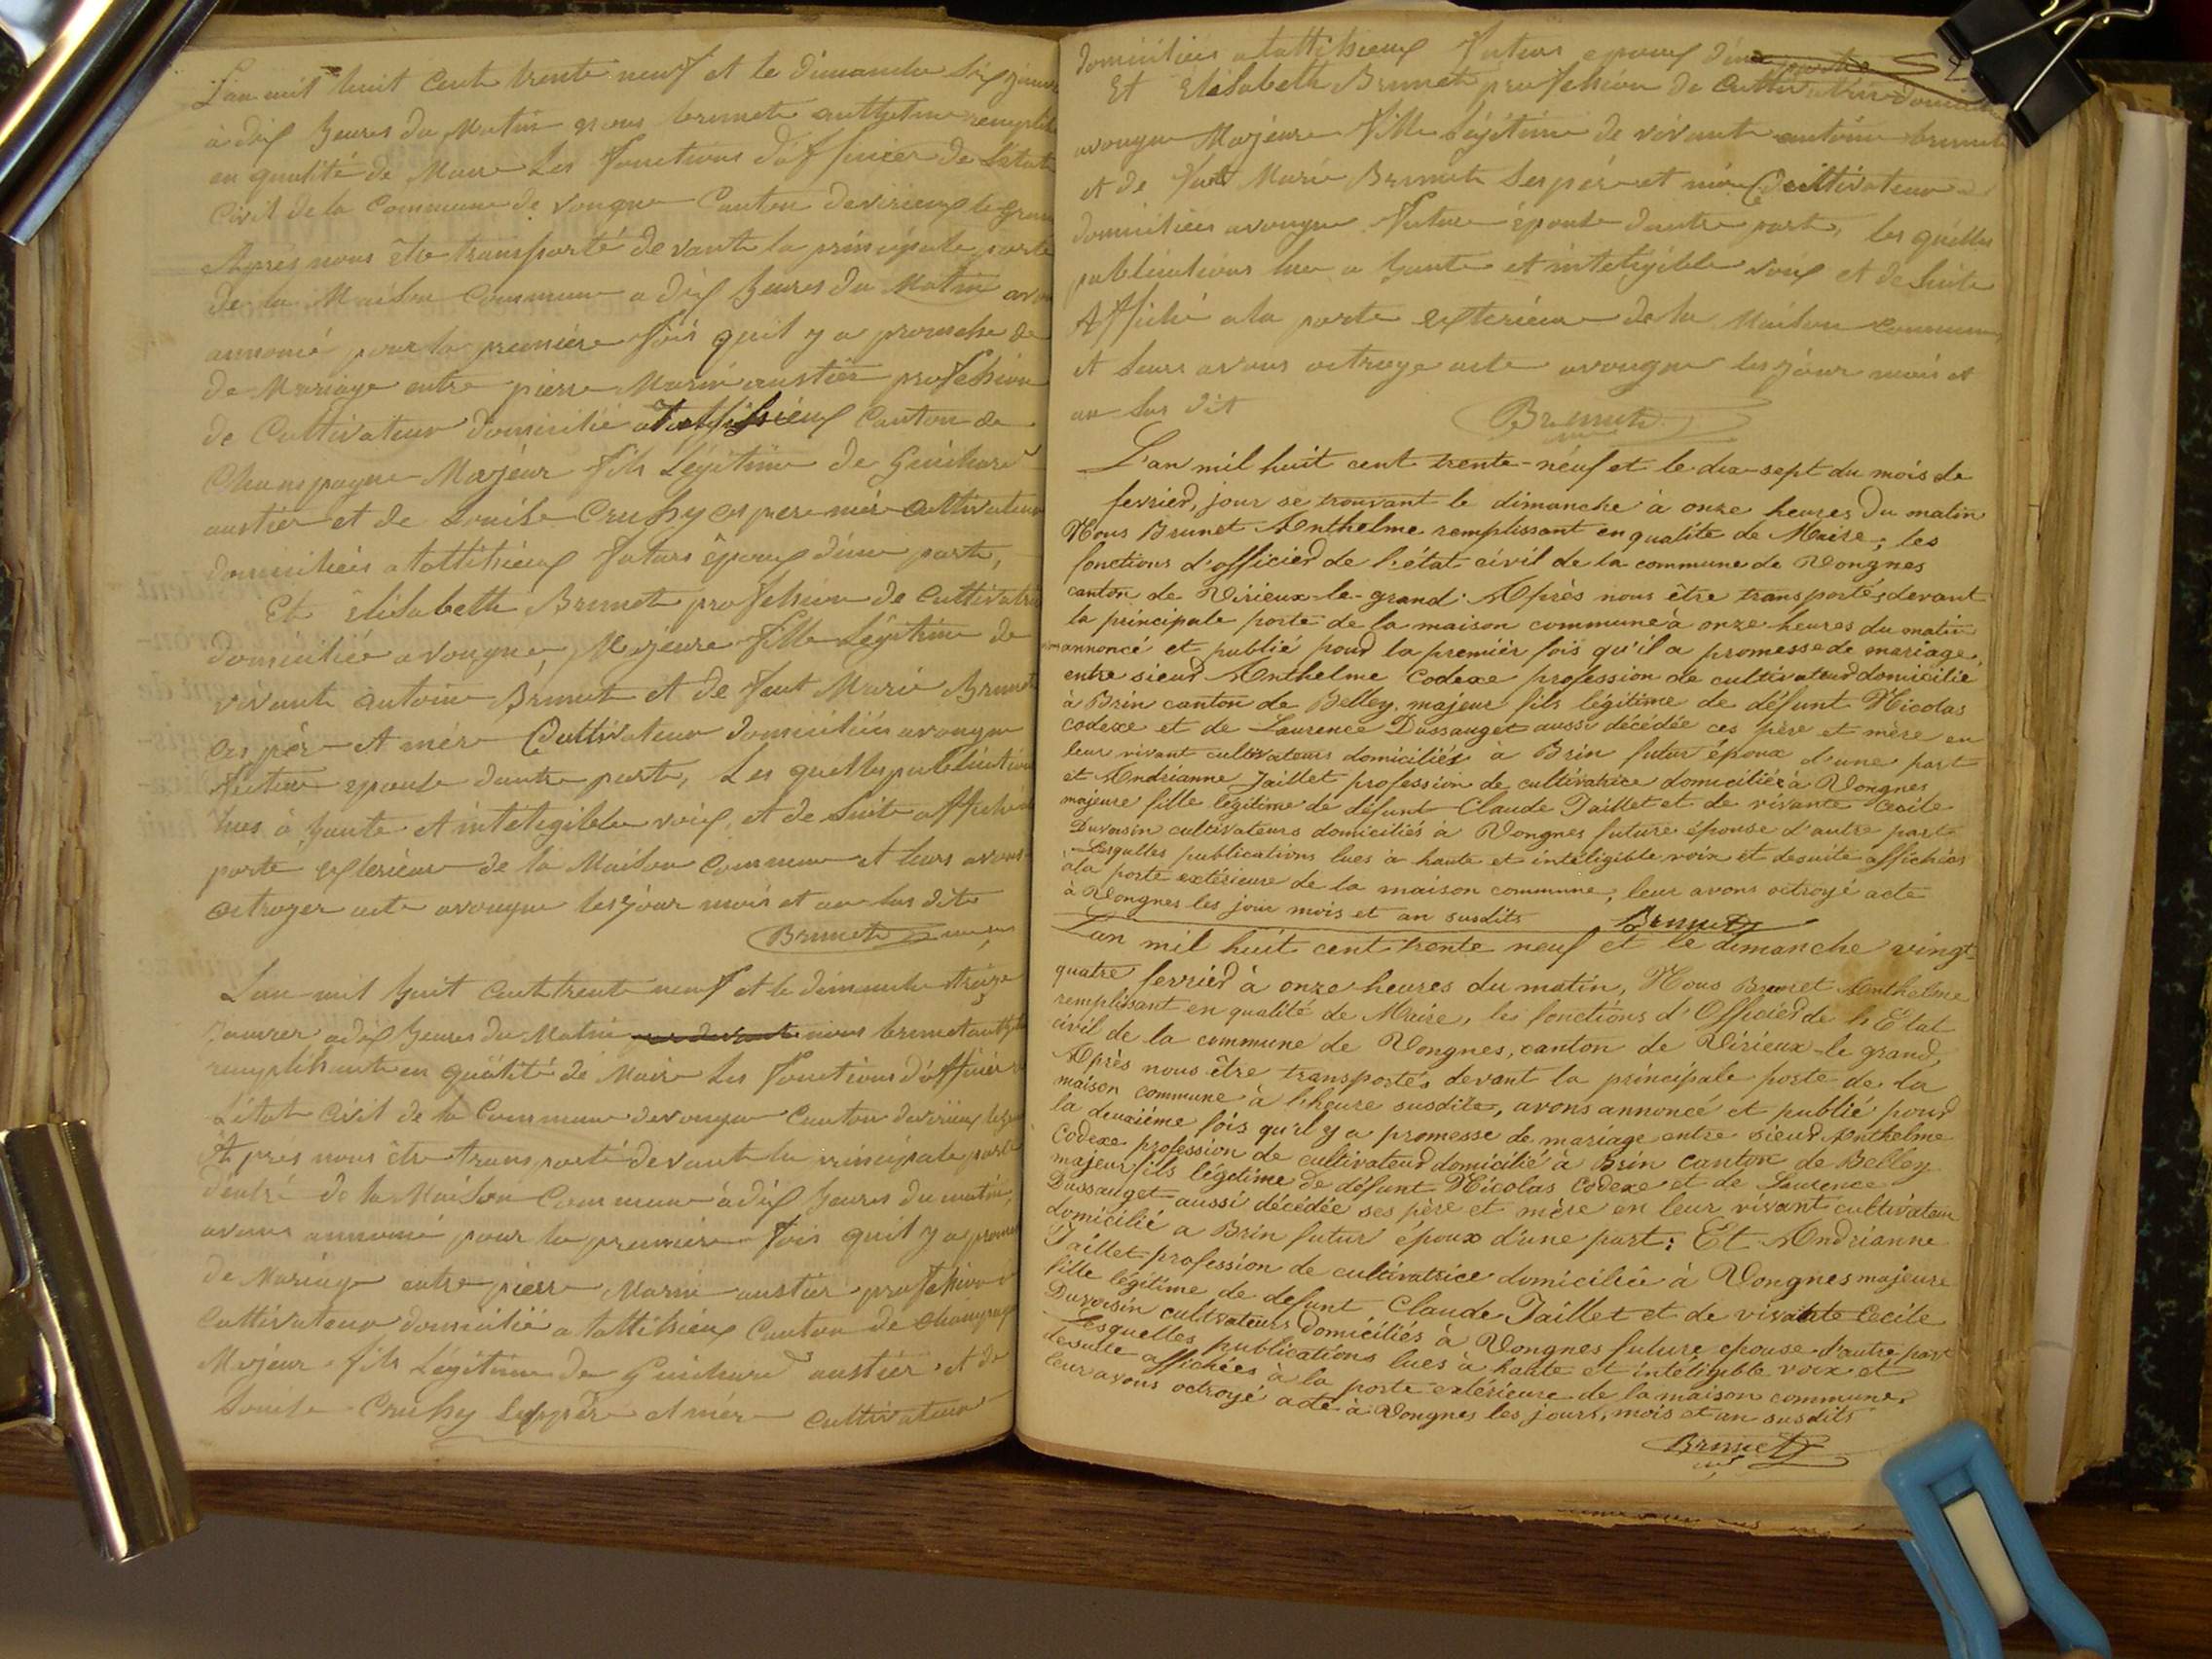 L'an mil huit Cent trente neuf et le dimanche Six janvier
à dix heures du Matin nous brunet anthelme remplis
en qualité de Maire Les fonctions d'officier de L'état
Civil de la Commune de vongne Canton de virieux le gran
Après nous être transporté devant la principale porte
de la Maison Commune a dix heures du Matin avo
annoncé pour la première fois quil y a promesse de
de Mariage entre pierre Marie austier profession
de Cultivateur domicilié a talissieux Canton de
Champagne Majeur fils Légitime de Guichard
austier et de Louise Crussy ces pere mère Cultivateur
domiciliés a talissieux futurs époux d'une part,
Et Elisabeth Brunet profession de Cultivatri
domiciliée a vongne, Majeure fille Légitime de
vivant antoine Brunet et de feut Marie Brunet
Ces père et mère Cultivateur domiciliés a vongne
future epouse d'autre part, Les quelles publication
lues à haute et inteligible voix, et de Suite affiché
porte exterieur de la Maison Commune et leurs avons
octroyer acte a vongne les jour mois et an sus dite
Brunet maire
L'an mil huit Cent trente neuf et le dimanche treize
Janvier a dix heures du Matin nous brunet anthe
remplissant en qualité de Maire Les fonctions d'officier
L'état Civil de la Commune de vongne Canton de virieux le
Après nous être transporté devant la principale porte
d'entré de la Maison Commune à dix heures du matin,
avons annoncé pour la première fois quil y a prome
de Mariage entre pierre Marie austier profession
Cultivateur domicilié a talissieux Canton de Champagne
Majeur fils Légitime de Guichard austier et de
Louise Crussy Ses père et mère Cultivateur
domiciliés a talissieux futurs epoux d'une
Et Elisabeth Brunet profession de Cultivatrice domici
a vongne Majeure fille Légitime de vivant antoine brunet
et de feut Marie Brunet Ses père et mère Cultivateur
domiciliés a vongne future épouse d'autre part, les quelles
publications lue a haute et inteligible voix et de Suite
Affiché a la porte exterieure de la Maison commune
et leurs avons octroye acte a vongne les jour mois et
an Sus dit
Brunet
L'an mil huit cent trente-neuf et le dix-sept du mois de
fevrier, jour se trouvant le dimanche à onze heures du matin
Nous Brunet Anthelme remplissant en qualité de Maire, les
fonctions d'officier de l'état civil de la commune de Vongnes
canton de Virieux-le-grand. Après nous être transportés devant
la principale porte de la maison commune à onze heures du matin
annoncé et publié pour la premièr fois qu'il a promesse de mariage,
entre sieur Anthelme Codexe profession de cultivateur domicilié
à Brin canton de Belley, majeur fils légitime de défunt Nicolas
codexe et de Laurence Dussauget aussi décédée ces père et mère en
leur vivant cultivateurs domiciliés à Brin futur époux d'une part
et Andrianne Jaillet profession de cultivatrice domiciliée à Vongnes
majeure fille légitime de défunt Claude Jaillet et de vivante Cecile
Duvoisin cultivateurs domiciliés à Vongnes future épouse d'autre part
Lesqulles publications lues à haute et intéligible voix et desuite affichées
àla porte extérieure de la maison commune, leur avons octroyé acte
à Vongnes les jour mois et an susdits
Brunet
L'an mil huit cent trente neuf et le dimanche vingt
quatre fevrier à onze heures du matin, Nous Brunet Anthelme
remplissant en qualité de Maire, les fonctions d'Officier de l'État
civil de la commune de Vongnes, canton de Virieux-le grand,
Après nous être transportés devant la principale porte de la
maison commune à l'heure susdite, avons annoncé et publié pour
la deuxième fois qu'il y a promesse de mariage entre sieur Anthelme
Codexe profession de cultivateur domicilié à Brin canton de Belley
majeur fils légitime de défunt Nicolas Codexe et de Laurence
Dussauget aussi décédée ses père et mère en leur vivant cultivateur
domicilié a Brin futur époux d'une part: Et Andrianne
Jaillet profession de cultivatrice domiciliée à Vongnes majeure
fille légitime de défunt Claude Jaillet et de vivante Cecile
Duvoisin cultivateurs domiciliés à Vongnes future epouse d'autre part
Lesquelles publications lues à haute et intéligible voix et
desuite affichées à la porte extérieure de la maison commune,
leur avons octroyé acte à Vongnes les jours, mois et an susdits
Brunet